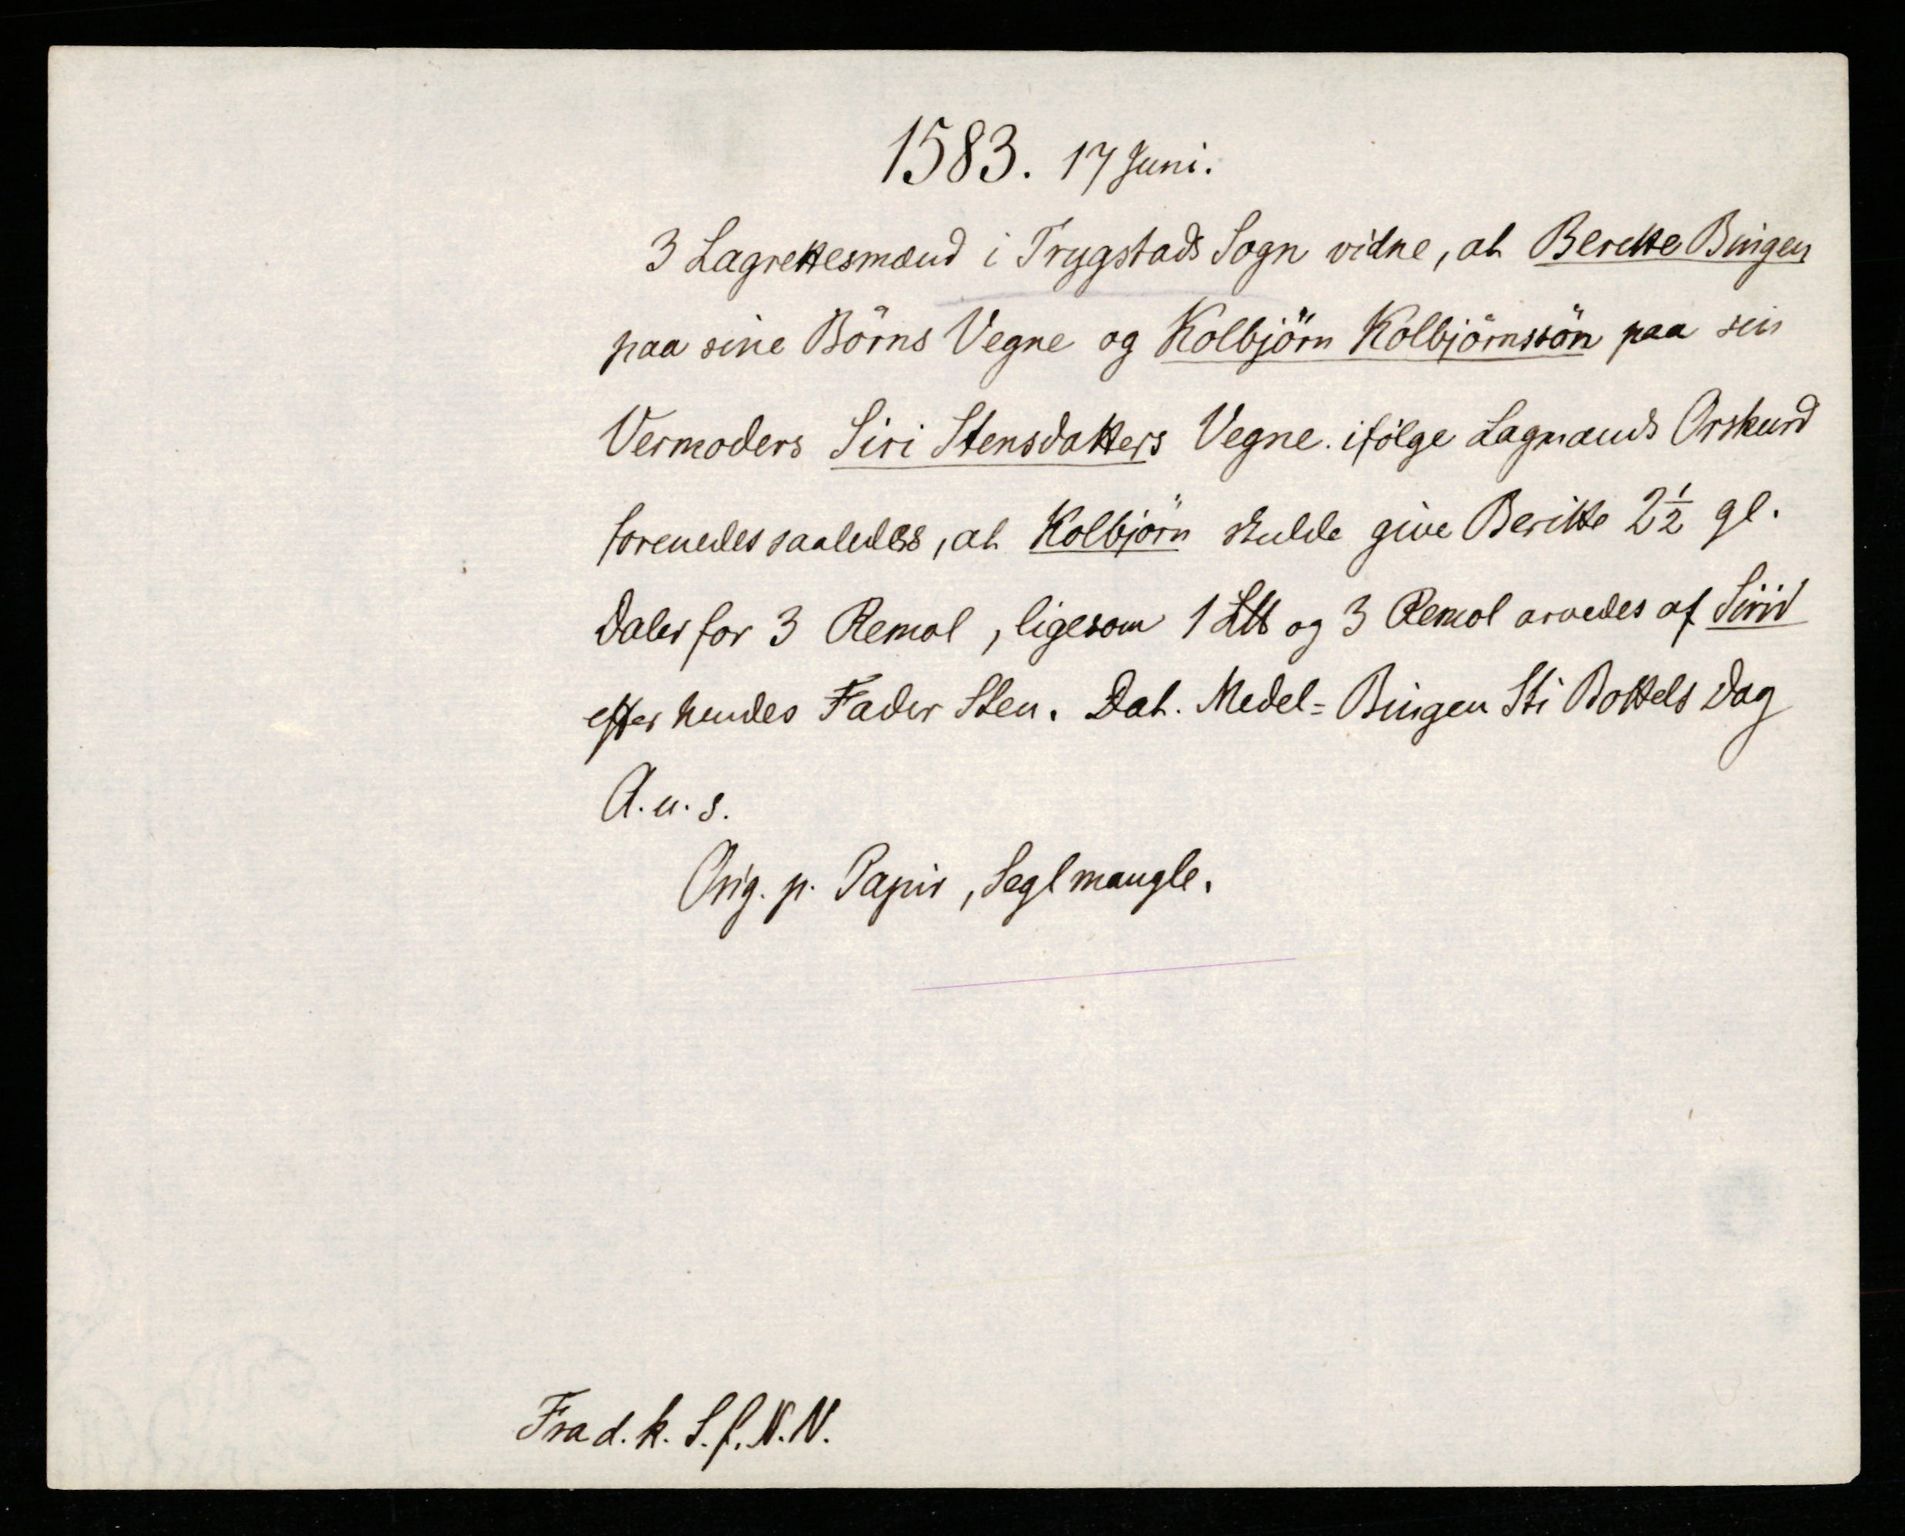 1583. 17 Juni.
3 Lagrettesmænd i Trygstads Sogn vidne, at Beritte Bingen
paa sine Börns Vegne og Kolbjörn Kolbjörnssön paa sin
Vermoders Siri Stensdatters Vegne ifölge Lagmands Orskurd
forenedes saaledes, at Kolbjörn skulde give Beritte 2½ gl.
Daler for 3 Remol, ligesom 1 L℔ og 3 Remol arvedes af Sirid
efter hendes Fader Sten. Dat. Medel=Bingen Sti Bottels Dag
A. u. s.
Orig. p. Papir, Segl mangle.
Fra d. k. S. f. N. N.